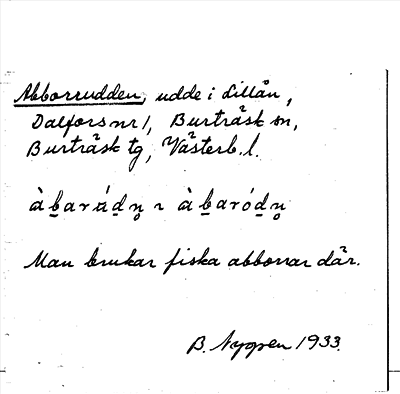 Abborrudden, udde i Lillån,
Dalfors nr 1, Burträsk sn,
Burträsk tg, Västerb. l.
àb̲arád̲n̥ ~ àb̲aród̲n̥
Man brukar fiska abborrar där.
B. Nygren 1933.